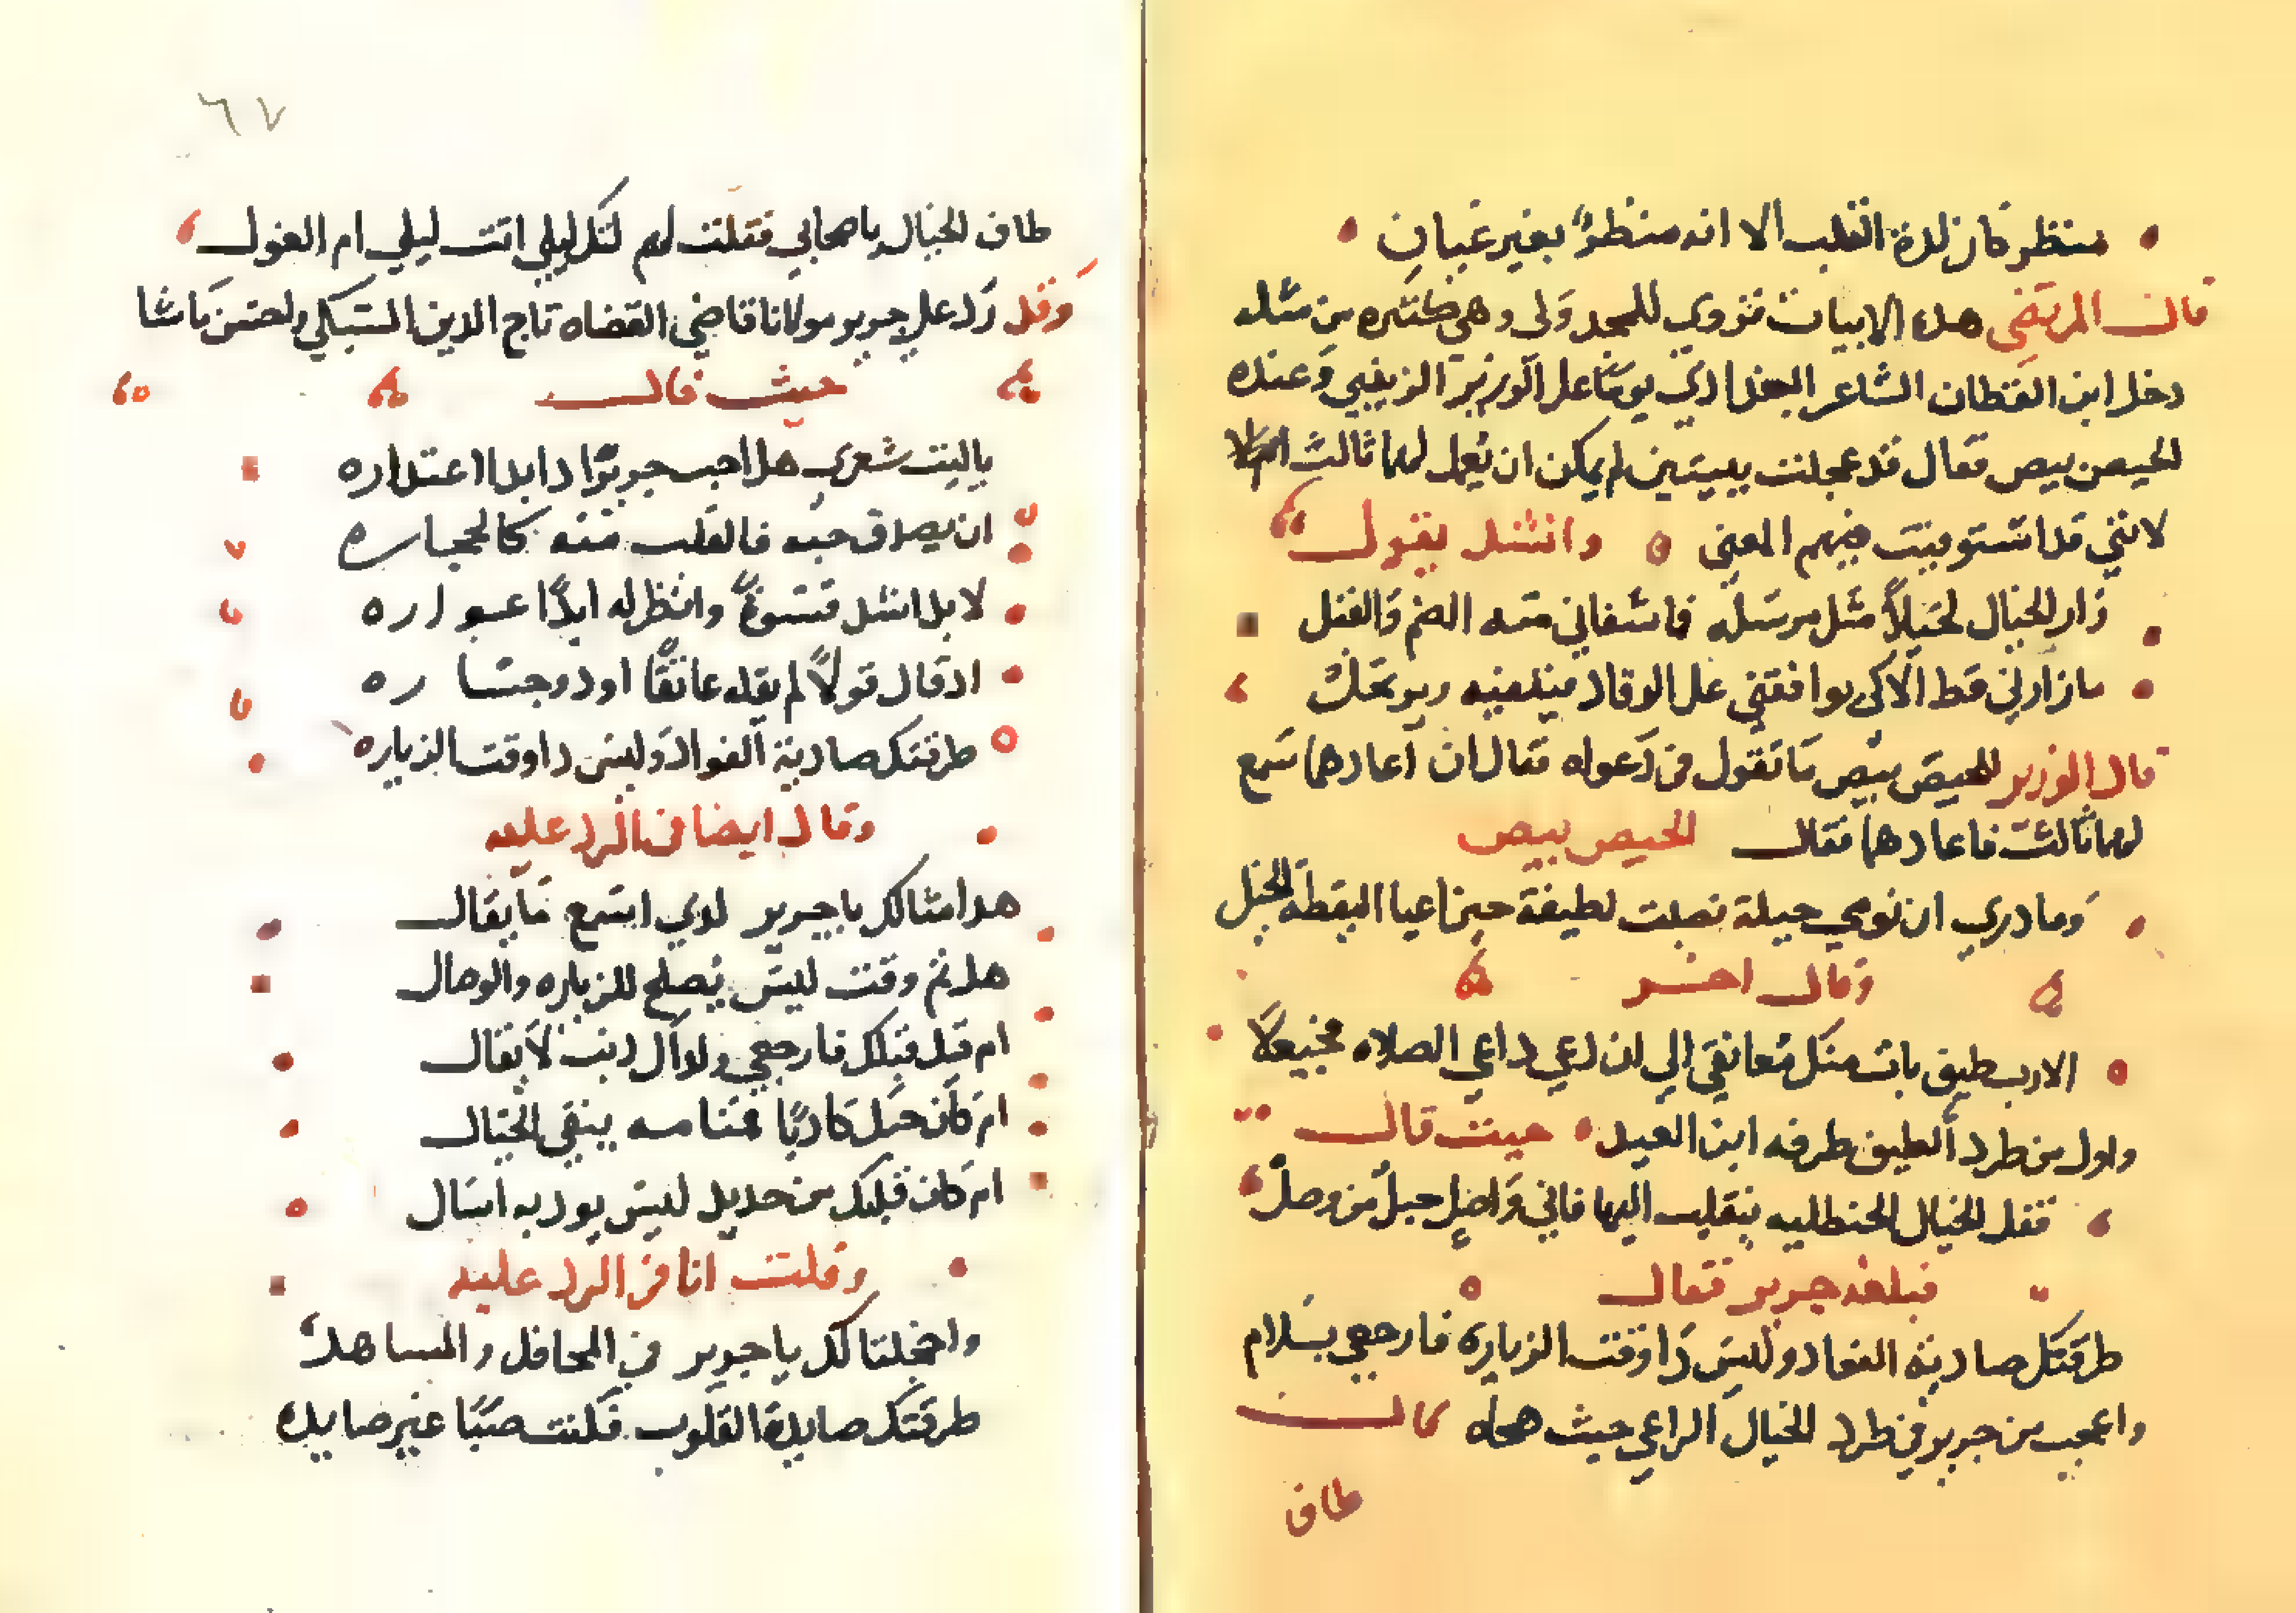 منظر كان لذة القلب الا انه منظر بغير عيان
قال المرتضي هذه الابيات تروي للمجد ولي وهي كثيره من مثله
دخل ابن القطان الشاعر البغدادي يوما علي الوزير الزينبي وعنده
الحيص بيص فقال قد عملت بيتين لم يمكن ان يعمل لهما ثالث
لانني قد استوفيت فيهم المعني وانشد يقول
زار الخيال نحيلا مثل مرسله فاشفاني منه الضم والقبل
ما زارني قط الا كي يوافقني علي الرقاد فينفيه ويرتحل
قال الوزير للحيص بيص ما تقول في دعواه فقال ان اعادهما سمع
لهما ثالث فاعادهما فقال الحيص بيص
وما دري ان نومي حيلة نصبت لطيفة حين اعيا اليقظة الحيل
وقال اخر
الا رب طيف بات منك معانقي الي ان دعي داعي الصلاه
واول من طرد الطيف طرفه ابن العبد حيث قال
فقل لخيال الحنظليه ينقلب اليها فاني واصل حبل من وصل
فبلغه جرير فقال
طرقتك صادية الفؤاد وليس ذا وقت الزيارة فارجعي بسلام
واعجب من جرير في طرد الخيال الراعي حيث هجاه قال
طاف
٦٧
طاف الخيال باصحابي فقلت لهم لتك ليلي اتت ليلي ام الغول
وقد رد علي جرير مولانا قاضي القضاه تاج الدين السبكي واحسن ما شا
حيث قال
ياليت شعري هل اجب جريرا ذا ابدا اعتذاره
ان يصدق حبه فالقلب منه كالحجاره
لا بل انشد وانظر له ابدا عواره
اذ قال قولا لم يقله عانقا او ذو جساره
طرقتك صادية الفواد وليس ذا وقت الزياره
وقال ايضا في الرد عليه
هذا مثالك يا جرير لدي استمع ما يقال
هل ثم وقت ليس يصلح للزياره والوصال
ام قبل قبلك فارجعي ولذال ذنب لا يقال
ام كان حبك كاذبا فمنامه ينفي الخيال
ام كان قلبك من حديد ليس يوذيه انسال
وقلت انا في الرد عليه
واخجلتا لك يا جرير في المحافل والمشاهد
طرقتك صايدة القلوب فكنت صبا غير صايد